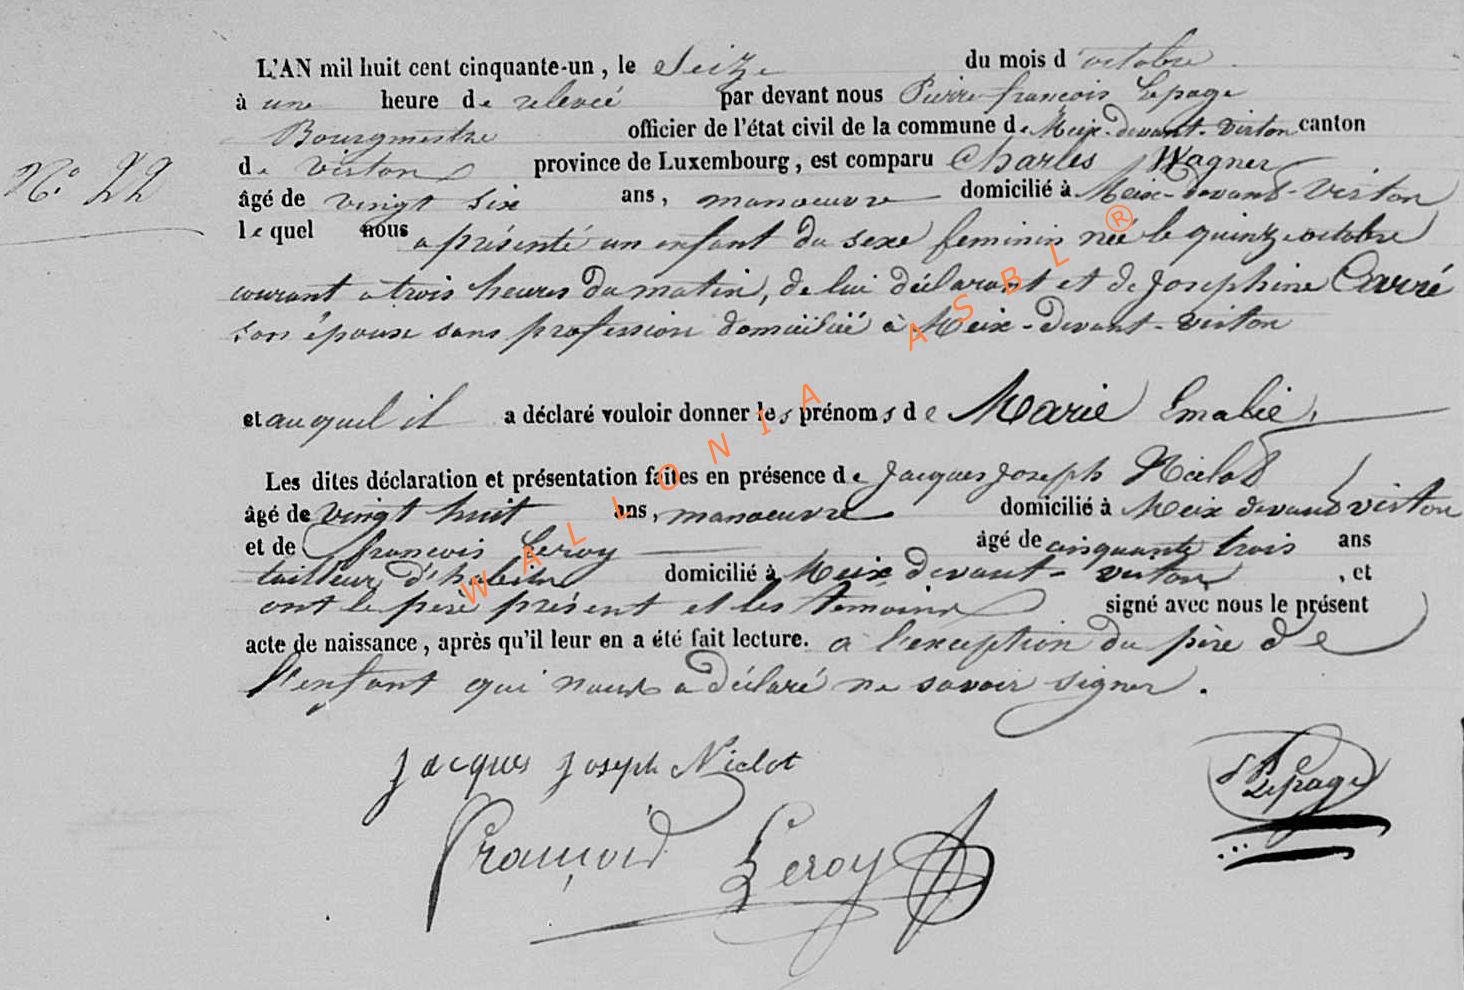 L'AN mil huit cent cinquante-un, le Seize du mois d'octobre
à une heure de relevée par devant nous Pierre françois Lepage
Bourgmestre officier de l'état civil de la commune de Meix-devant-virton canton
N° 22
de virton province de Luxembourg, est comparu Charles Wagner
âgé de vingt six ans, manoeuvre domicilié à Meix-devant-virton
lequel nous a présenté un enfant du sexe feminin née le quinze octobre
courant a trois heures du matin, de lui déclarant et de Josephine Carré
son épouse sans profession domiciliée à Meix-devant-virton
et auquel il a déclaré vouloir donner les prénoms de Marie Emalie,
Les dites déclaration et présentation faites en présence de Jacques Joseph Niclot
âgé de vingt huit ans, manoeuvre domicilié à Meix devant virton
et de françois Leroy âgé de cinquante trois ans
tailleur d'habits domicilié à Meix devant-virton, et
ont le père présent et les temoins signé avec nous le présent
acte de naissance, après qu'il leur en a été fait lecture. a l'exception du père de
l'enfant qui nous a déclaré ne savoir signer.
Jacques Joseph Niclot
François Leroy
Lepage
WALLONIA ASBL ®